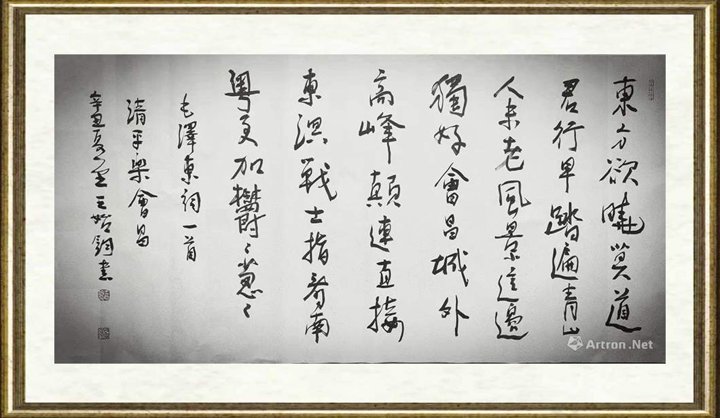 東方欲曉莫道
君行早踏遍青山
人未老風景這邊
獨好會昌城外
高峰顛連直接
東溟戰士指看南
粵更加鬱〻蔥〻
毛澤東詞一首
清平樂會昌
辛丑夏書
Artron.Net